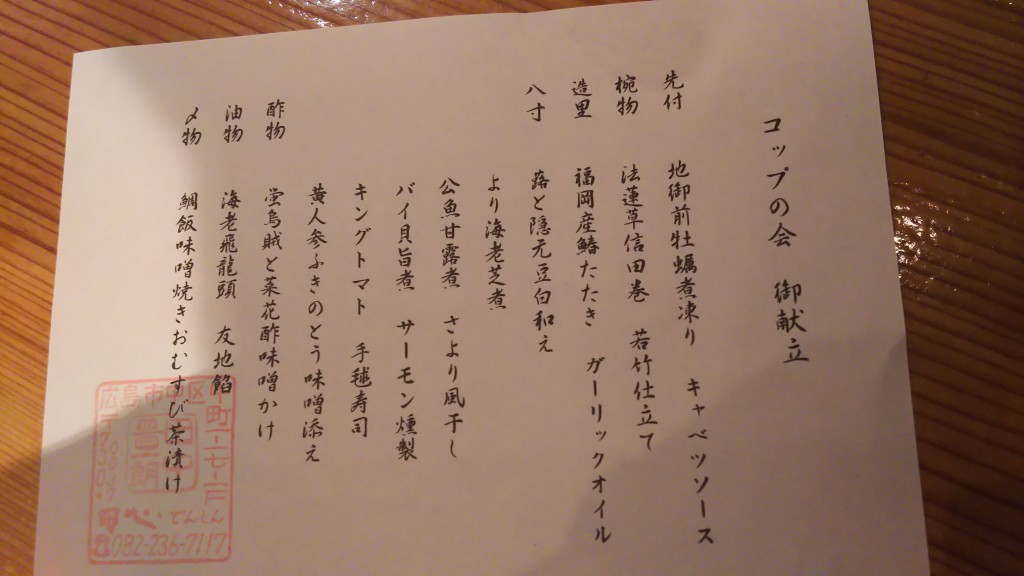 コップの会 御献立
先付 地御前牡蠣煮凍り キャベツソース
椀物 法蓮草信田巻 若竹仕立て
造里 福岡産鰆たたき ガーリックオイル
八寸 蕗と隠元豆白和え
より海老芝煮
公魚甘露煮 さより風干し
バイ貝旨煮 サーモン燻製
キングトマト 手毬寿司
黄人参ふきのとう味噌添え
酢物 蛍烏賊と菜花酢味噌かけ
油物 海老飛龍頭 友地餡
〆物 鯛飯味噌焼きおむすび茶漬け
広島市中区
でんしん
☎082-236-7117